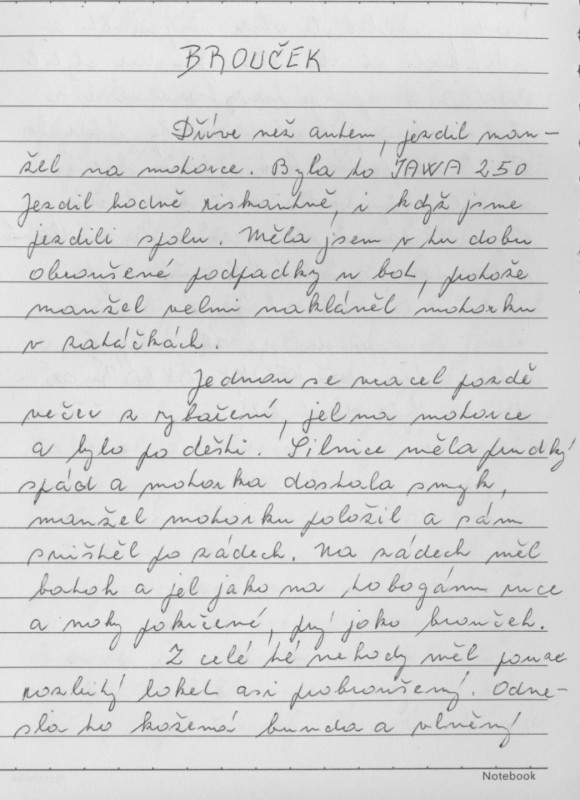 BROUČEK
Dříve než autem, jezdil man-
žel na motorce. Byla to JAWA 250
Jezdil hodně riskantně, i když jsme
jezdili spolu. Měla jsem v tu dobu
obroušené podpadky u bot, protože
manžel velmi nakláněl motorku
v zatáčkách.
Jednou se vracel pozdě
večer z rybaření, jel na motorce
a bylo po dešti. Silnice měla prudký
spád a motorka dostala smyk,
manžel motorku položil a sám
svištěl po zádech. Na zádech měl
batoh a jel jako na tobogánu ruce
a nohy pokrčené, prý jako brouček.
Z celé té nehody měl pouze
rozbitý loket asi probroušený. Odne-
sla to kožená bunda a vlněný
Notebook